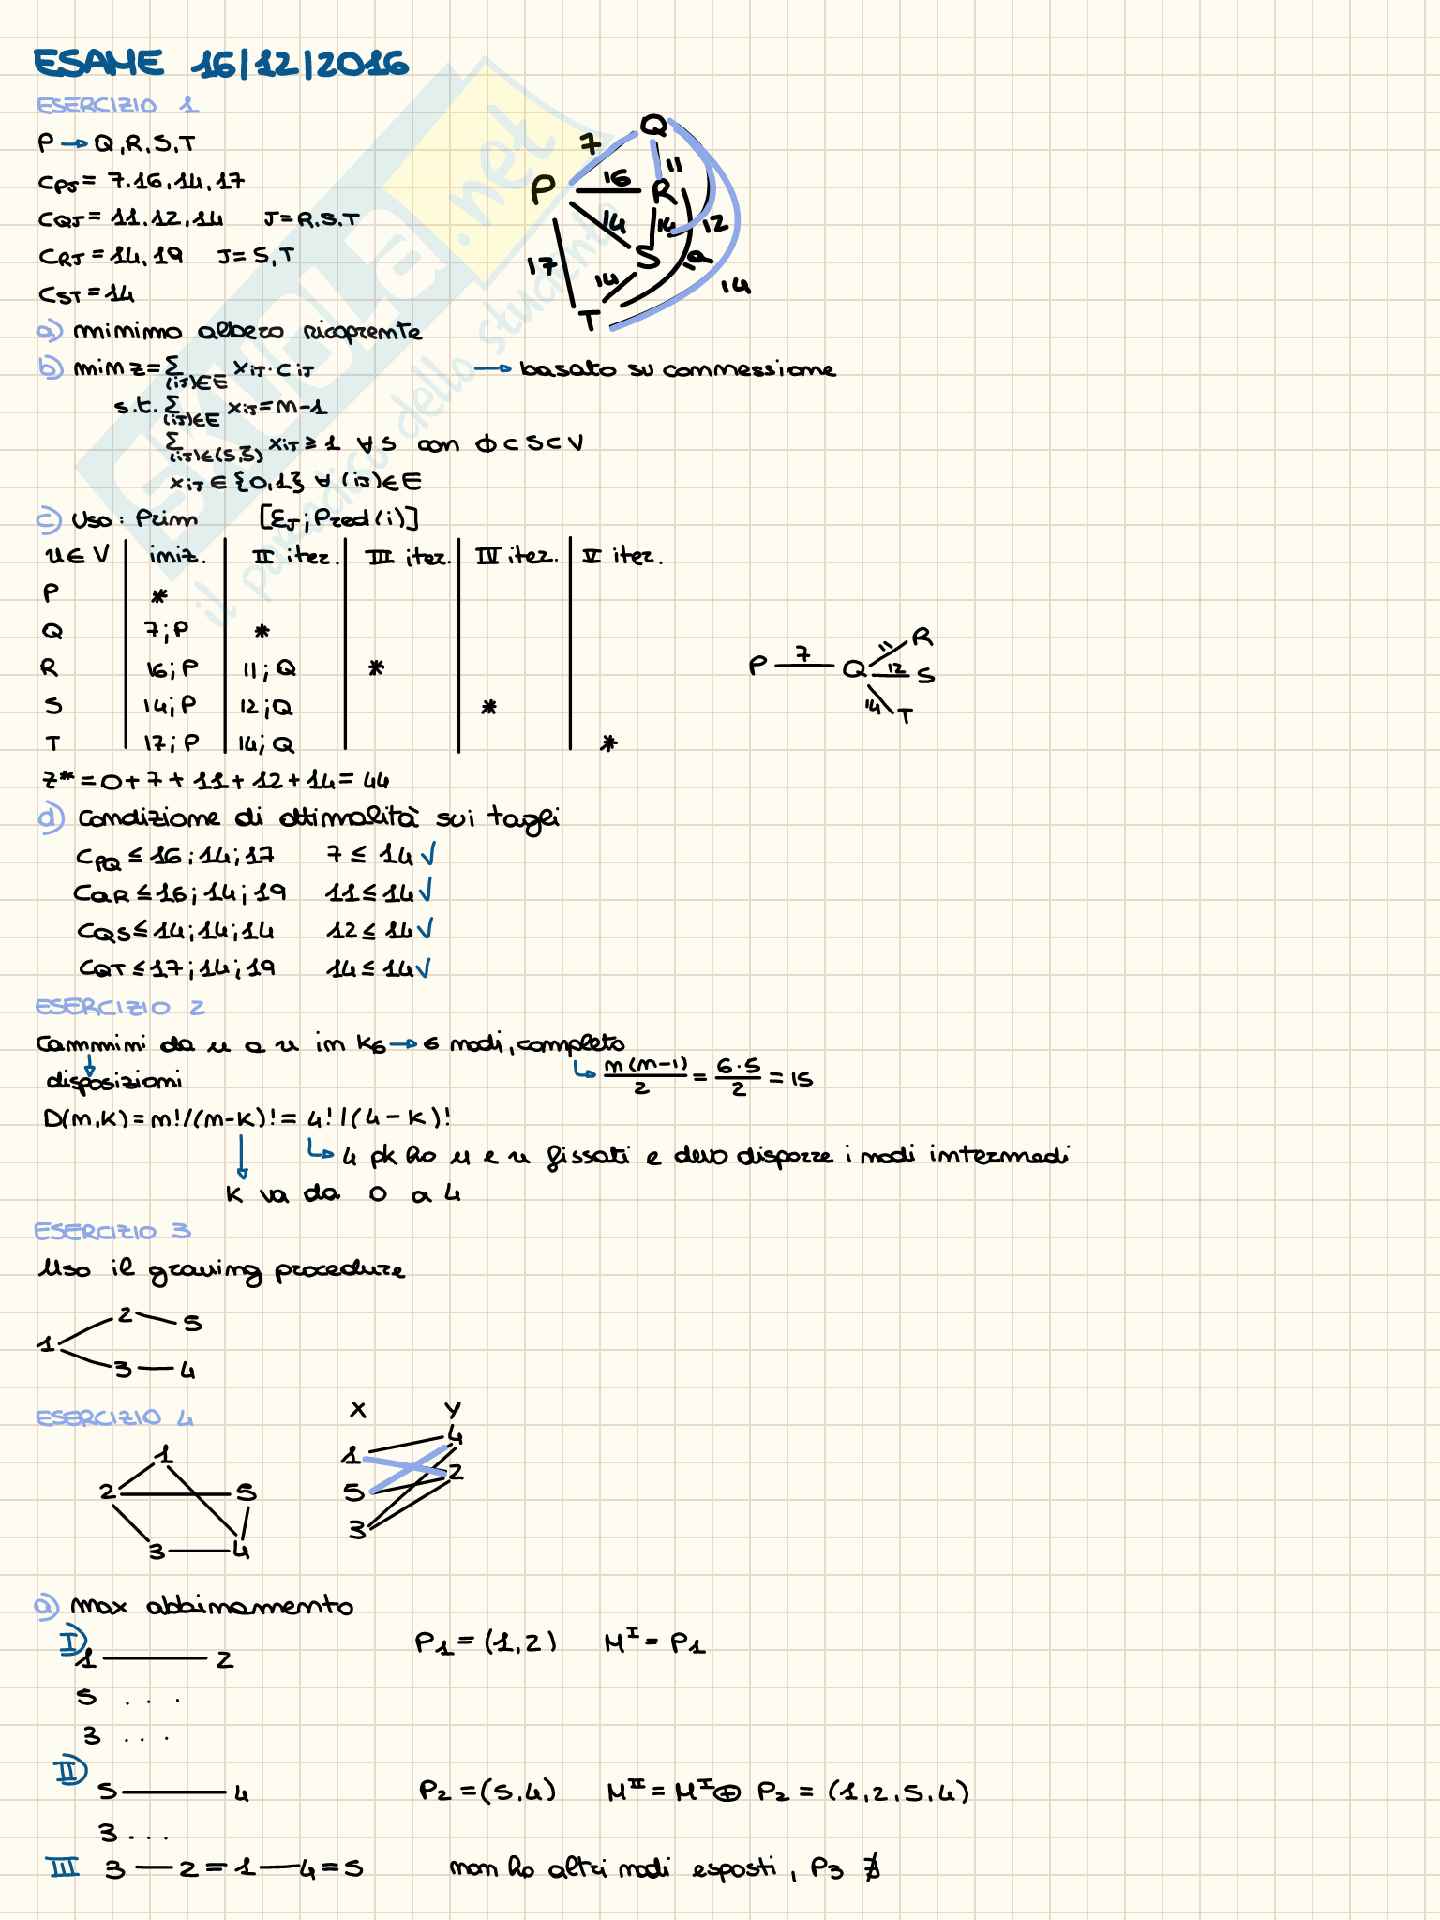 ESAME 16/12/2016
ESERCIZIO 1
P → Q,R,S,T
CPJ = 7.16,14,17
CQJ = 11.12,14 J=R.S.T
CRJ = 14,19 J=S,T
CST = 14
Q
7
11
P
16
R
14
14
12
S
17
14
19
14
T
a) minimo albero ricoprente
b) min z = Σ(iJ)∈E xiJ·ciJ → basato su connessione
s.t. Σ(iJ)∈E xiJ = n-1
Σ(iJ)∈(S,S̄) xiJ ≥ 1 ∀ S con ∅ ⊂ S ⊂ V
xiJ ∈ {0,1} ∀ (iJ) ∈ E
c) Uso: Prim [EJ; Pred(i)]
u ∈ V iniz. II iter. III iter. IV iter. V iter.
P *
Q 7;P *
R 16;P 11;Q *
S 14;P 12;Q *
T 17;P 14;Q *
P 7 Q 11 R
12 S
14 T
z* = 0+7+11+12+14 = 44
d) Condizione di ottimalità sui tagli
CPQ ≤ 16;14;17 7 ≤ 14 √
CQR ≤ 16;14;19 11 ≤ 14 √
CQS ≤ 14;14;14 12 ≤ 14 √
CQT ≤ 17;14;19 14 ≤ 14 √
ESERCIZIO 2
Cammini da u a v in K6 → 6 nodi, completo
disposizioni ↳ n(n-1)/2 = 6·5/2 = 15
D(n,k) = n!/(n-k)! = 4!/(4-k)!
↳ 4 pk ho u e v fissati e devo disporre i nodi intermedi
k va da 0 a 4
ESERCIZIO 3
Uso il graving procedure
2 5
1
3 4
ESERCIZIO 4
X Y
1 1 4
2 5 5 2
3 4 3
a) max abbinamento
I) 1 2 P1 = (1,2) M^I = P1
5 . . .
3 . . .
II) 5 4 P2 = (5,4) M^II = M^I ⊕ P2 = (1,2,5,4)
3 . . .
III 3 — 2 = 1 — 4 = 5 non ho altri nodi esposti, P3 ∄
SKUOLA.net
il paradiso dello studente